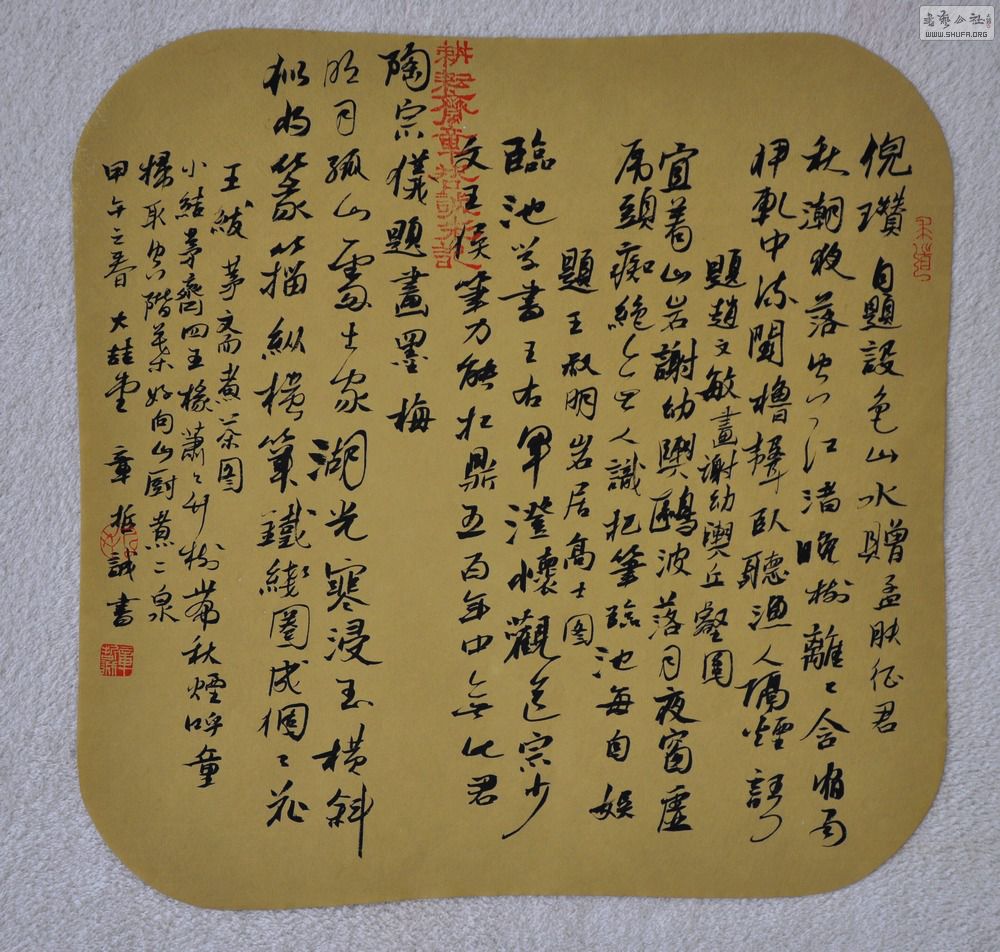 倪瓚 自題設色山水贈孟膚徵君
秋潮夜落空江渚晚樹離〻含宿雨
伊軋中流聞櫓聲臥聽漁人隔煙語
題趙文敏畫謝幼輿丘壑圖
宜著山岩謝幼輿鷗波落月夜窗虛
虎頭癡絕無人識把筆臨池每自娛
題王叔明岩居高士圖
臨池學書王右軍澄懷觀道宗少
文王侯筆力能扛鼎五百年中無此君
陶宗儀題畫墨梅
明月孤山處士家湖光寒浸玉橫斜
似將篆籀縱橫筆鐵綫圈成個〻花
王紱 茅齋煮茶图
小結茅齋四五椽蕭〻竹樹帶秋煙呼童
掃取空階葉好向山廚煮二泉
甲午之春 大喆堂 章哲誠書
耕耘齋章哲誠
書藝公社
WWW.SHUFA.ORG